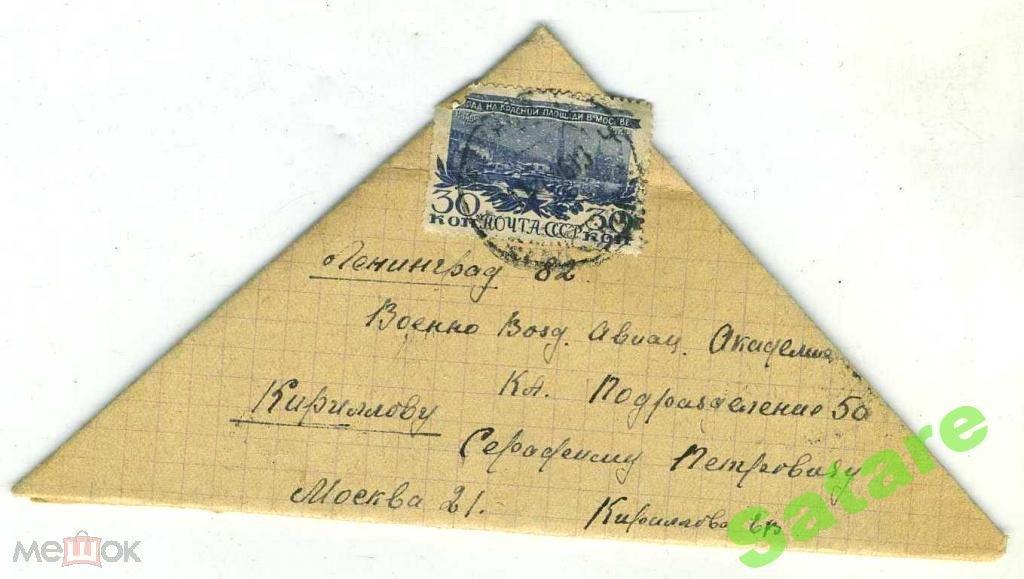 РАД НА КРАСНОЙ ПЛОЩАДИ В МОСКВЕ
30 КОП ПОЧТА СССР 30 КОП
Ленинград 82
Военно Возд. Авиац. Академия
Кл. Подразделение 50
Кириллову
Серафиму Петровичу
Москва 21.
Кириллова
satare
МЕШОК